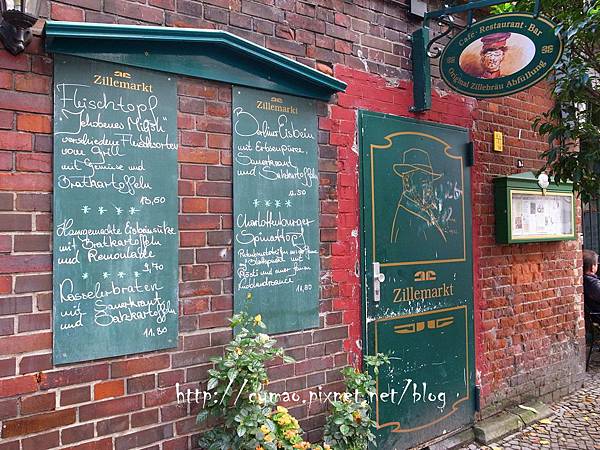 Zillemarkt
Fleischtopf
verschiedene Fleischsorten
vom Grill
mit Gemüse und
Bratkartoffeln
13,50
Hausgemachte Eisbeinsülze
mit Bratkartoffeln
und Remoulade
9,70
Kasselerbraten
mit Sauerkraut
und Salzkartoffeln
11,80
Zillemarkt
Berliner Eisbein
mit Erbspüree,
Sauerkraut
und Salzkartoffeln
Charlottenburger
Spinattopf
11,80
Café · Restaurant · Bar
Original Zillebräu Abfüllung
Zillemarkt
http://cumao.pixnet.net/blog